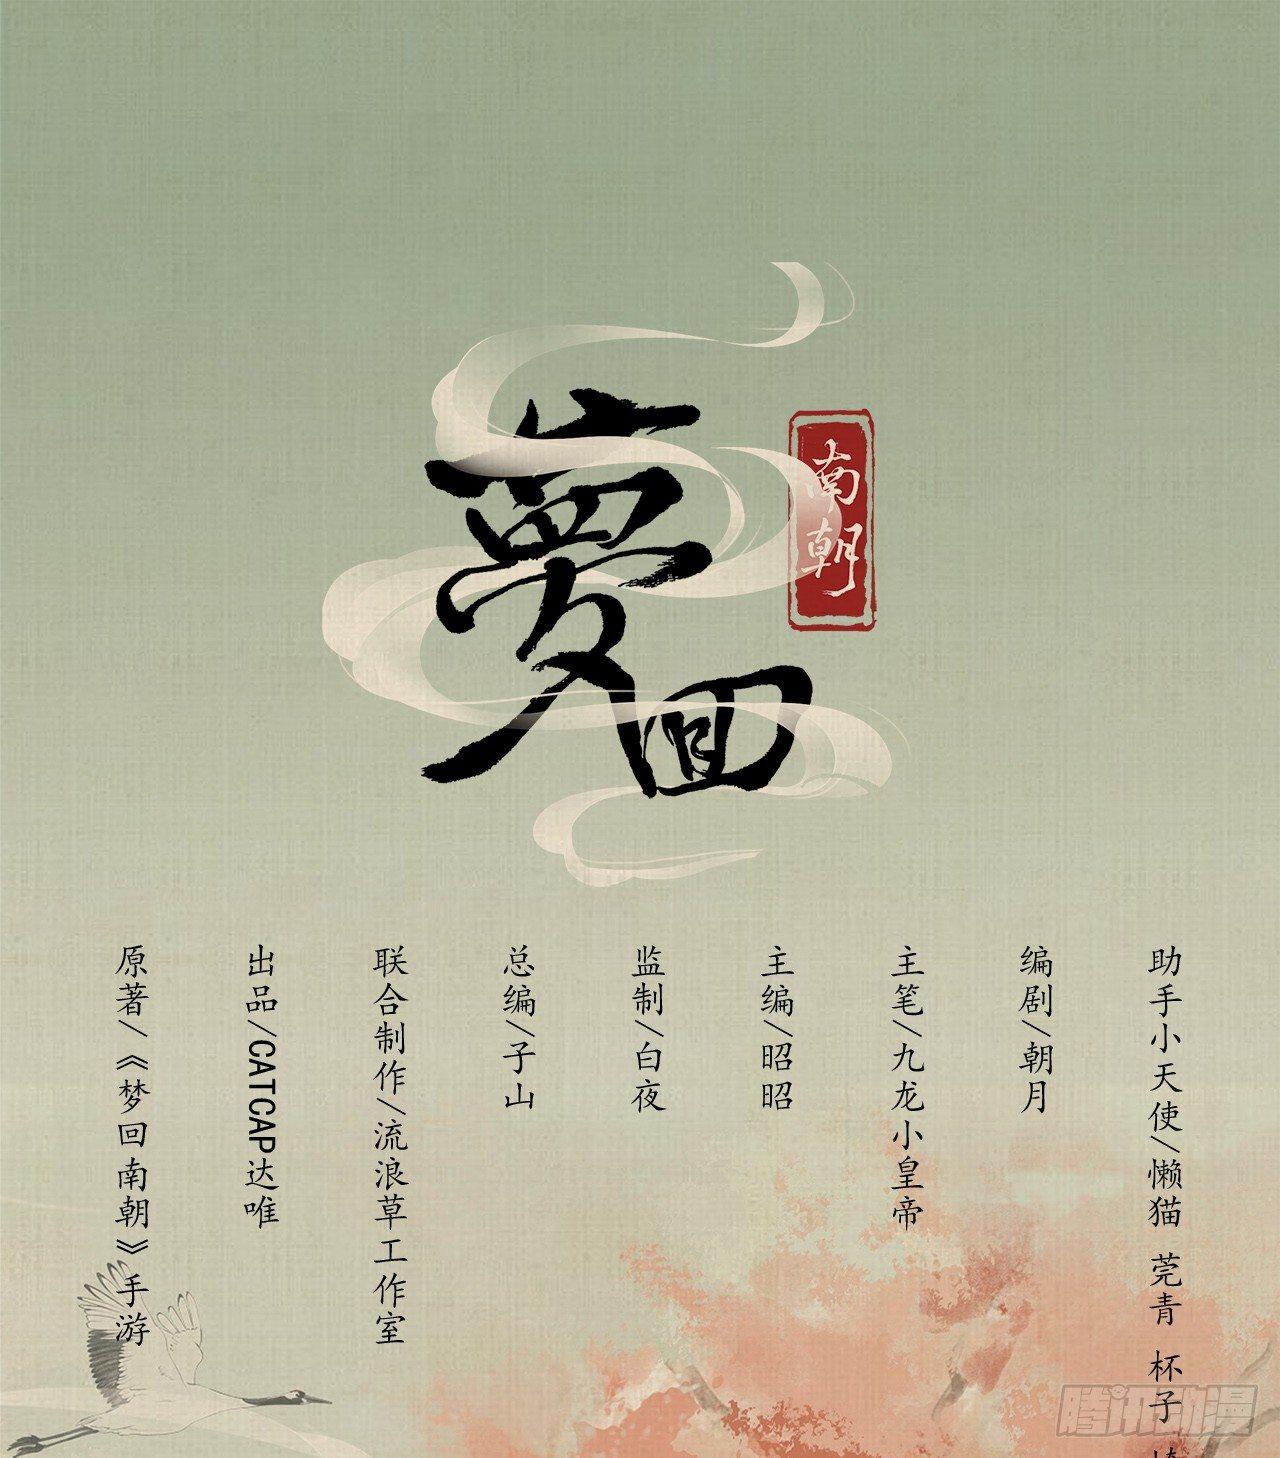 夢回
南朝
原著/《梦回南朝》手游
出品/CATCAP达唯
联合制作/流浪草工作室
总编/子山
监制/白夜
主编/昭昭
主笔/九龙小皇帝
编剧/朝月
助手小天使/懒猫 莞青 杯子
腾讯动漫